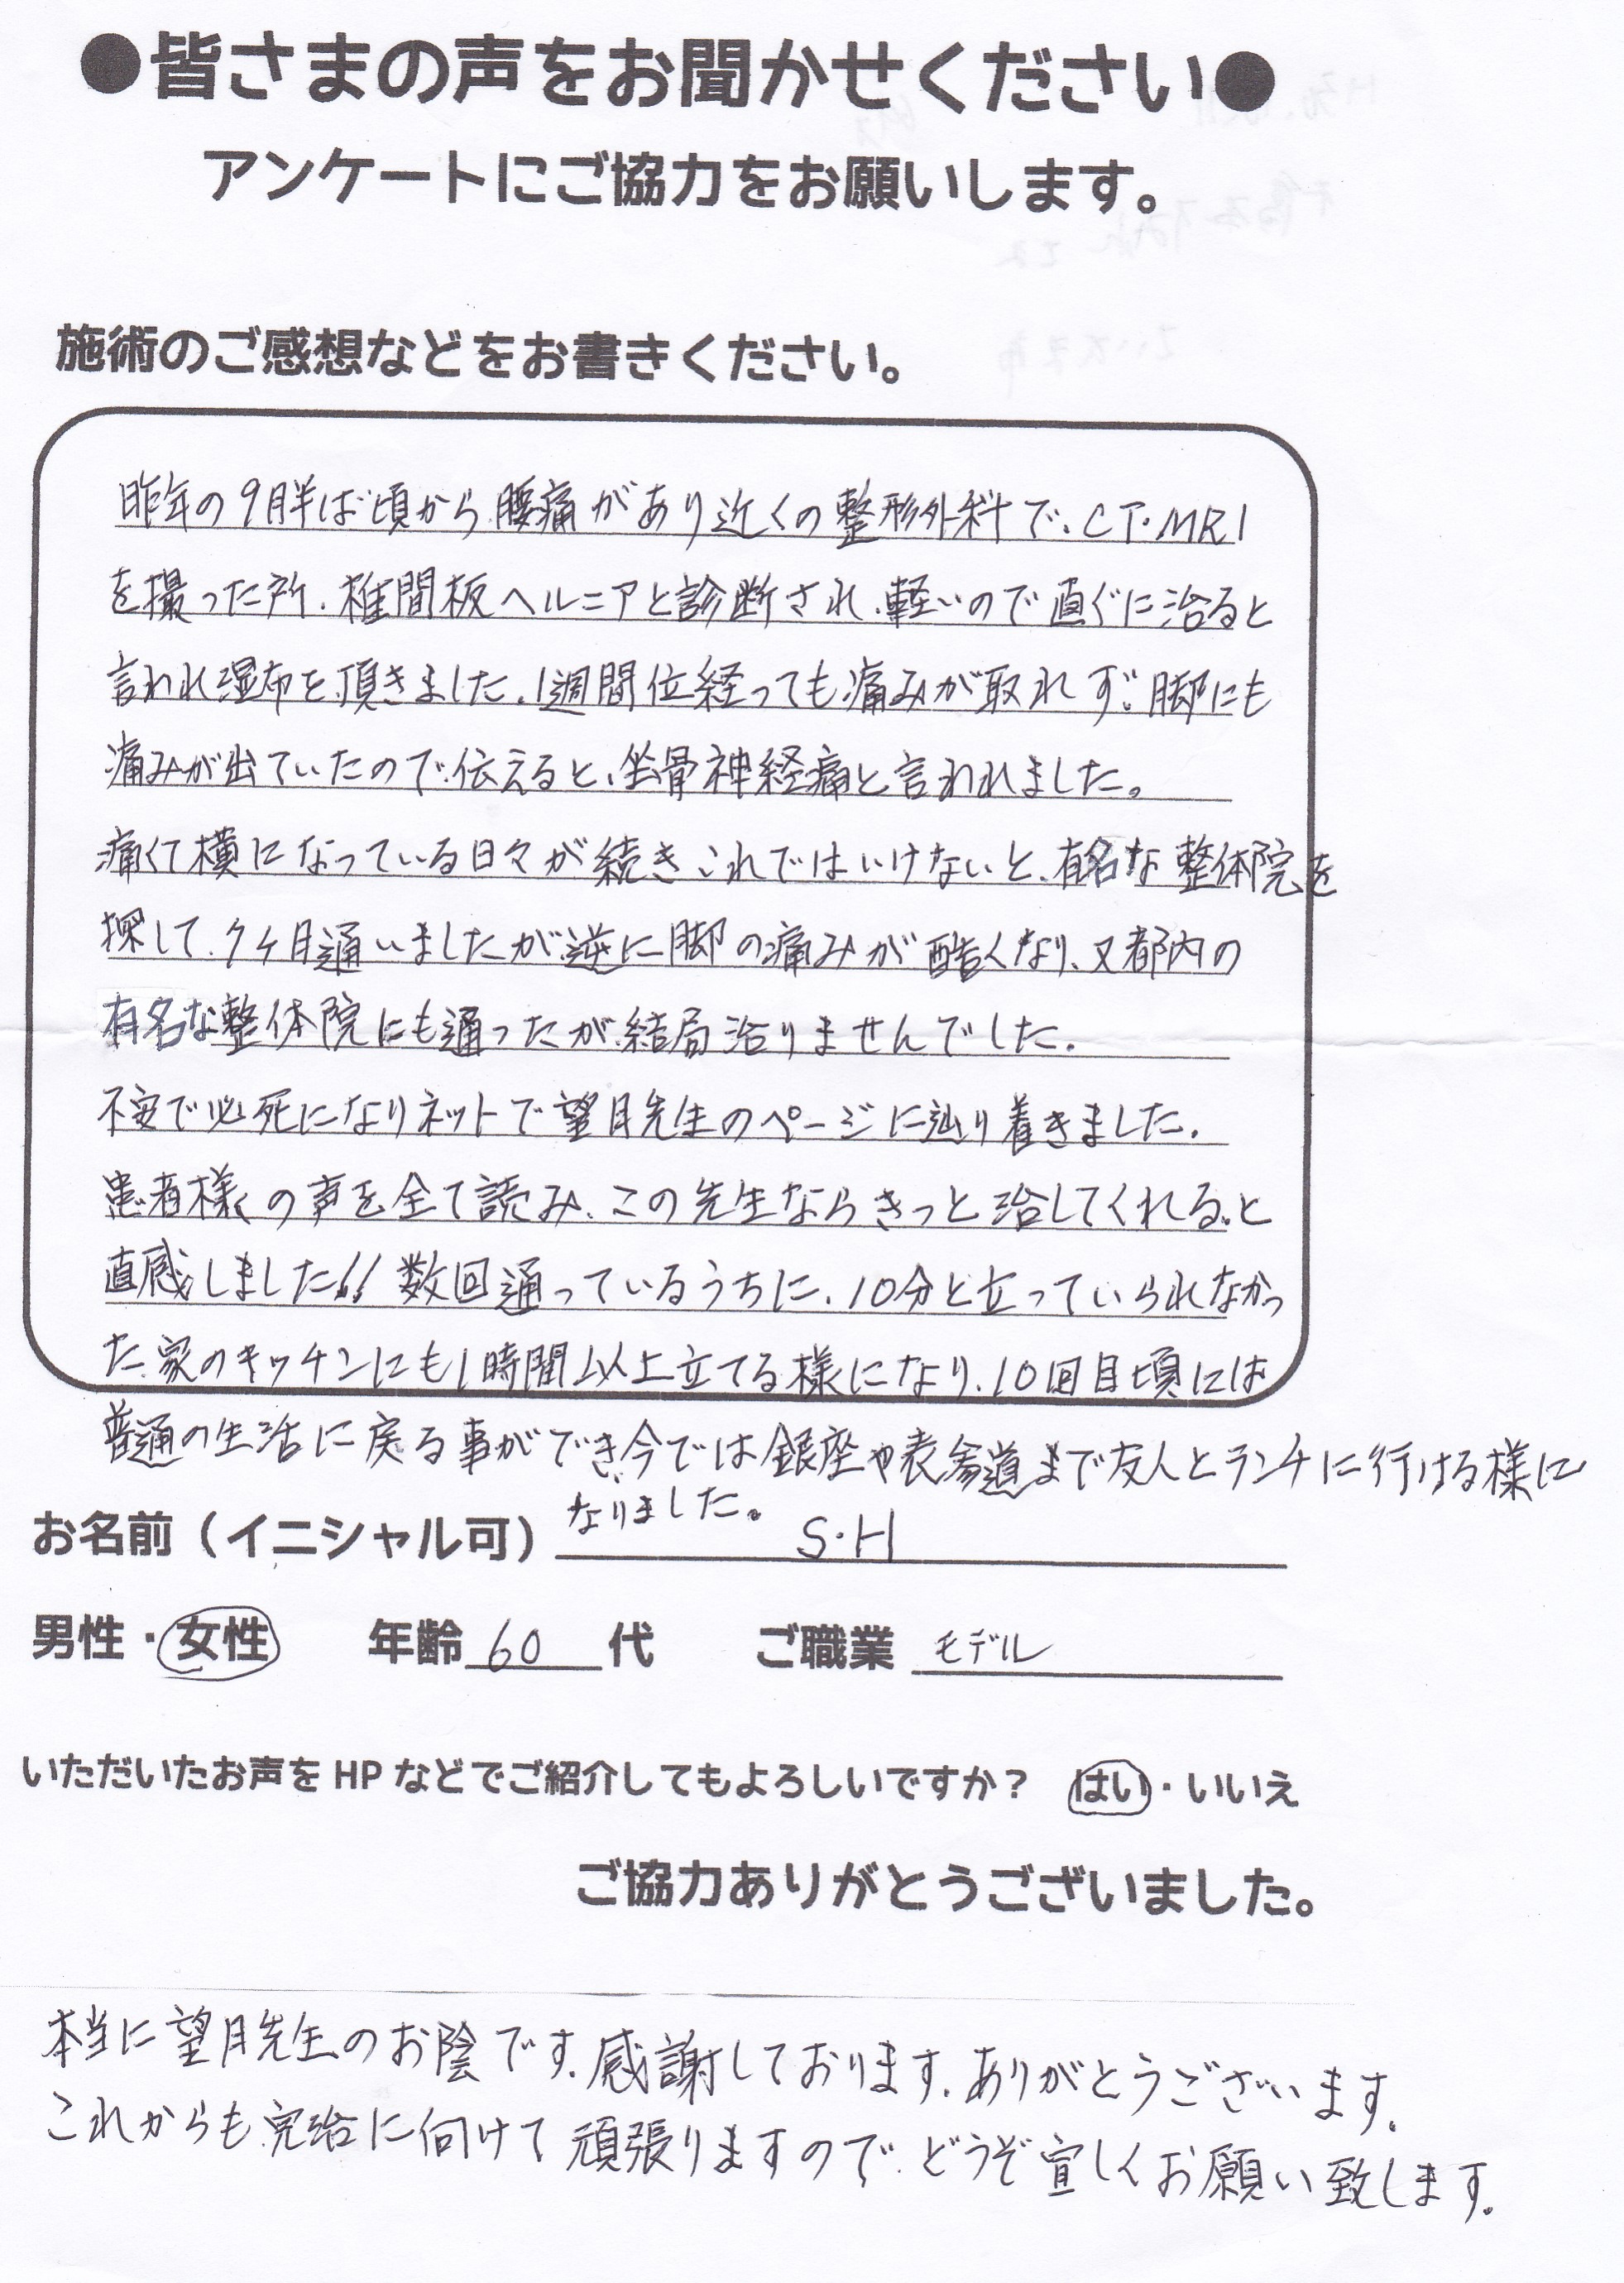 ●皆さまの声をお聞かせください●
アンケートにご協力をお願いします。
施術のご感想などをお書きください。
昨年の9月半ば頃から腰痛があり近くの整形外科で、CT・MRI
を撮った所、椎間板ヘルニアと診断され、軽いので直ぐに治ると
言われ湿布を頂きました。1週間位経っても痛みが取れず、脚にも
痛みが出ていたので、伝えると、坐骨神経痛と言われました。
痛くて横になっている日々が続きこれではいけないと、有名な整体院を
探して、7ヶ月通いましたが逆に脚の痛みが酷くなり、又都内の
有名な整体院にも通ったが、結局治りませんでした。
不安で必死になりネットで望月先生のページに辿り着きました。
患者様々の声を全て読み、この先生ならきっと治してくれる。と
直感しました!! 数回通っているうちに、10分と立っていられなかっ
た、家のキッチンにも1時間以上立てる様になり、10回目頃には
普通の生活に戻る事ができ、今では銀座や表参道まで友人とランチに行ける様に
なりました。
お名前（イニシャル可） S・H
男性・女性 年齢 60 代 ご職業 モデル
いただいたお声を HP などでご紹介してもよろしいですか？ はい・いいえ
ご協力ありがとうございました。
本当に望月先生のお陰です。感謝しております。ありがとうございます。
これからも完治に向けて頑張りますので、どうぞ宜しくお願い致します。